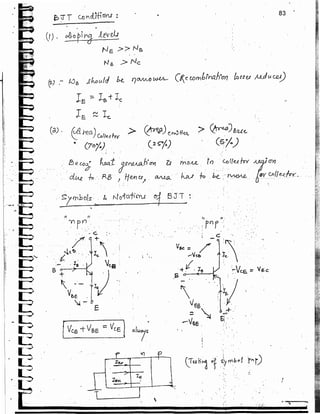 83
BJT Conditions :
(1). doping levels
NE >> NB
NB > NC
(b) :- WB should be narrower (Recombination losses reduces)
IE = IB + IC
IE ≈ IC
(3). (Area) Collector > (Area) Emitter > (Area) Base
(70%) (25%) (5%)
Because heat generation is more in collector region
due to RB, Hence, area has to be more for collector.
Symbols & Notations of BJT :
"npn" "pnp"
C
C
VCB
IC
VBC =
-VCB
IC
B
IB
VCE
B
IB
-VCE = VEC
VBE
IE
VEB
IE
=
-VBE
E
E
VCB + VBE = VCE always
P n P
(Testing of symbol PNP)